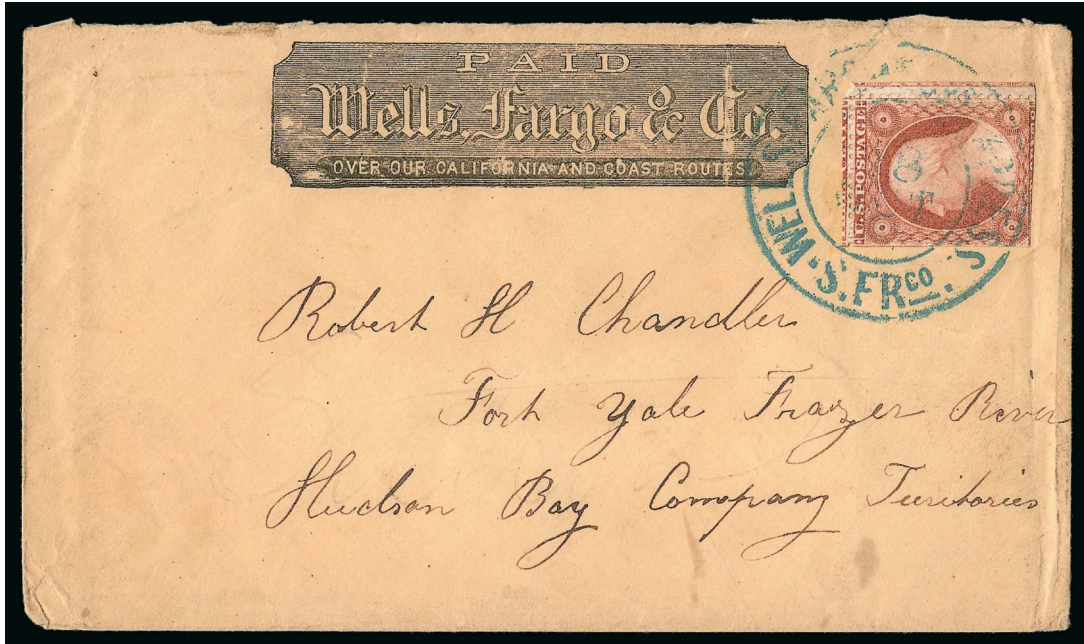 PAID
Wells, Fargo & Co.
OVER OUR CALIFORNIA AND COAST ROUTES
U.S. POSTAGE
WELLS
S. FRCO.
Robert H Chandler
Fort Yale Frazer River
Hudson Bay Company Turitories